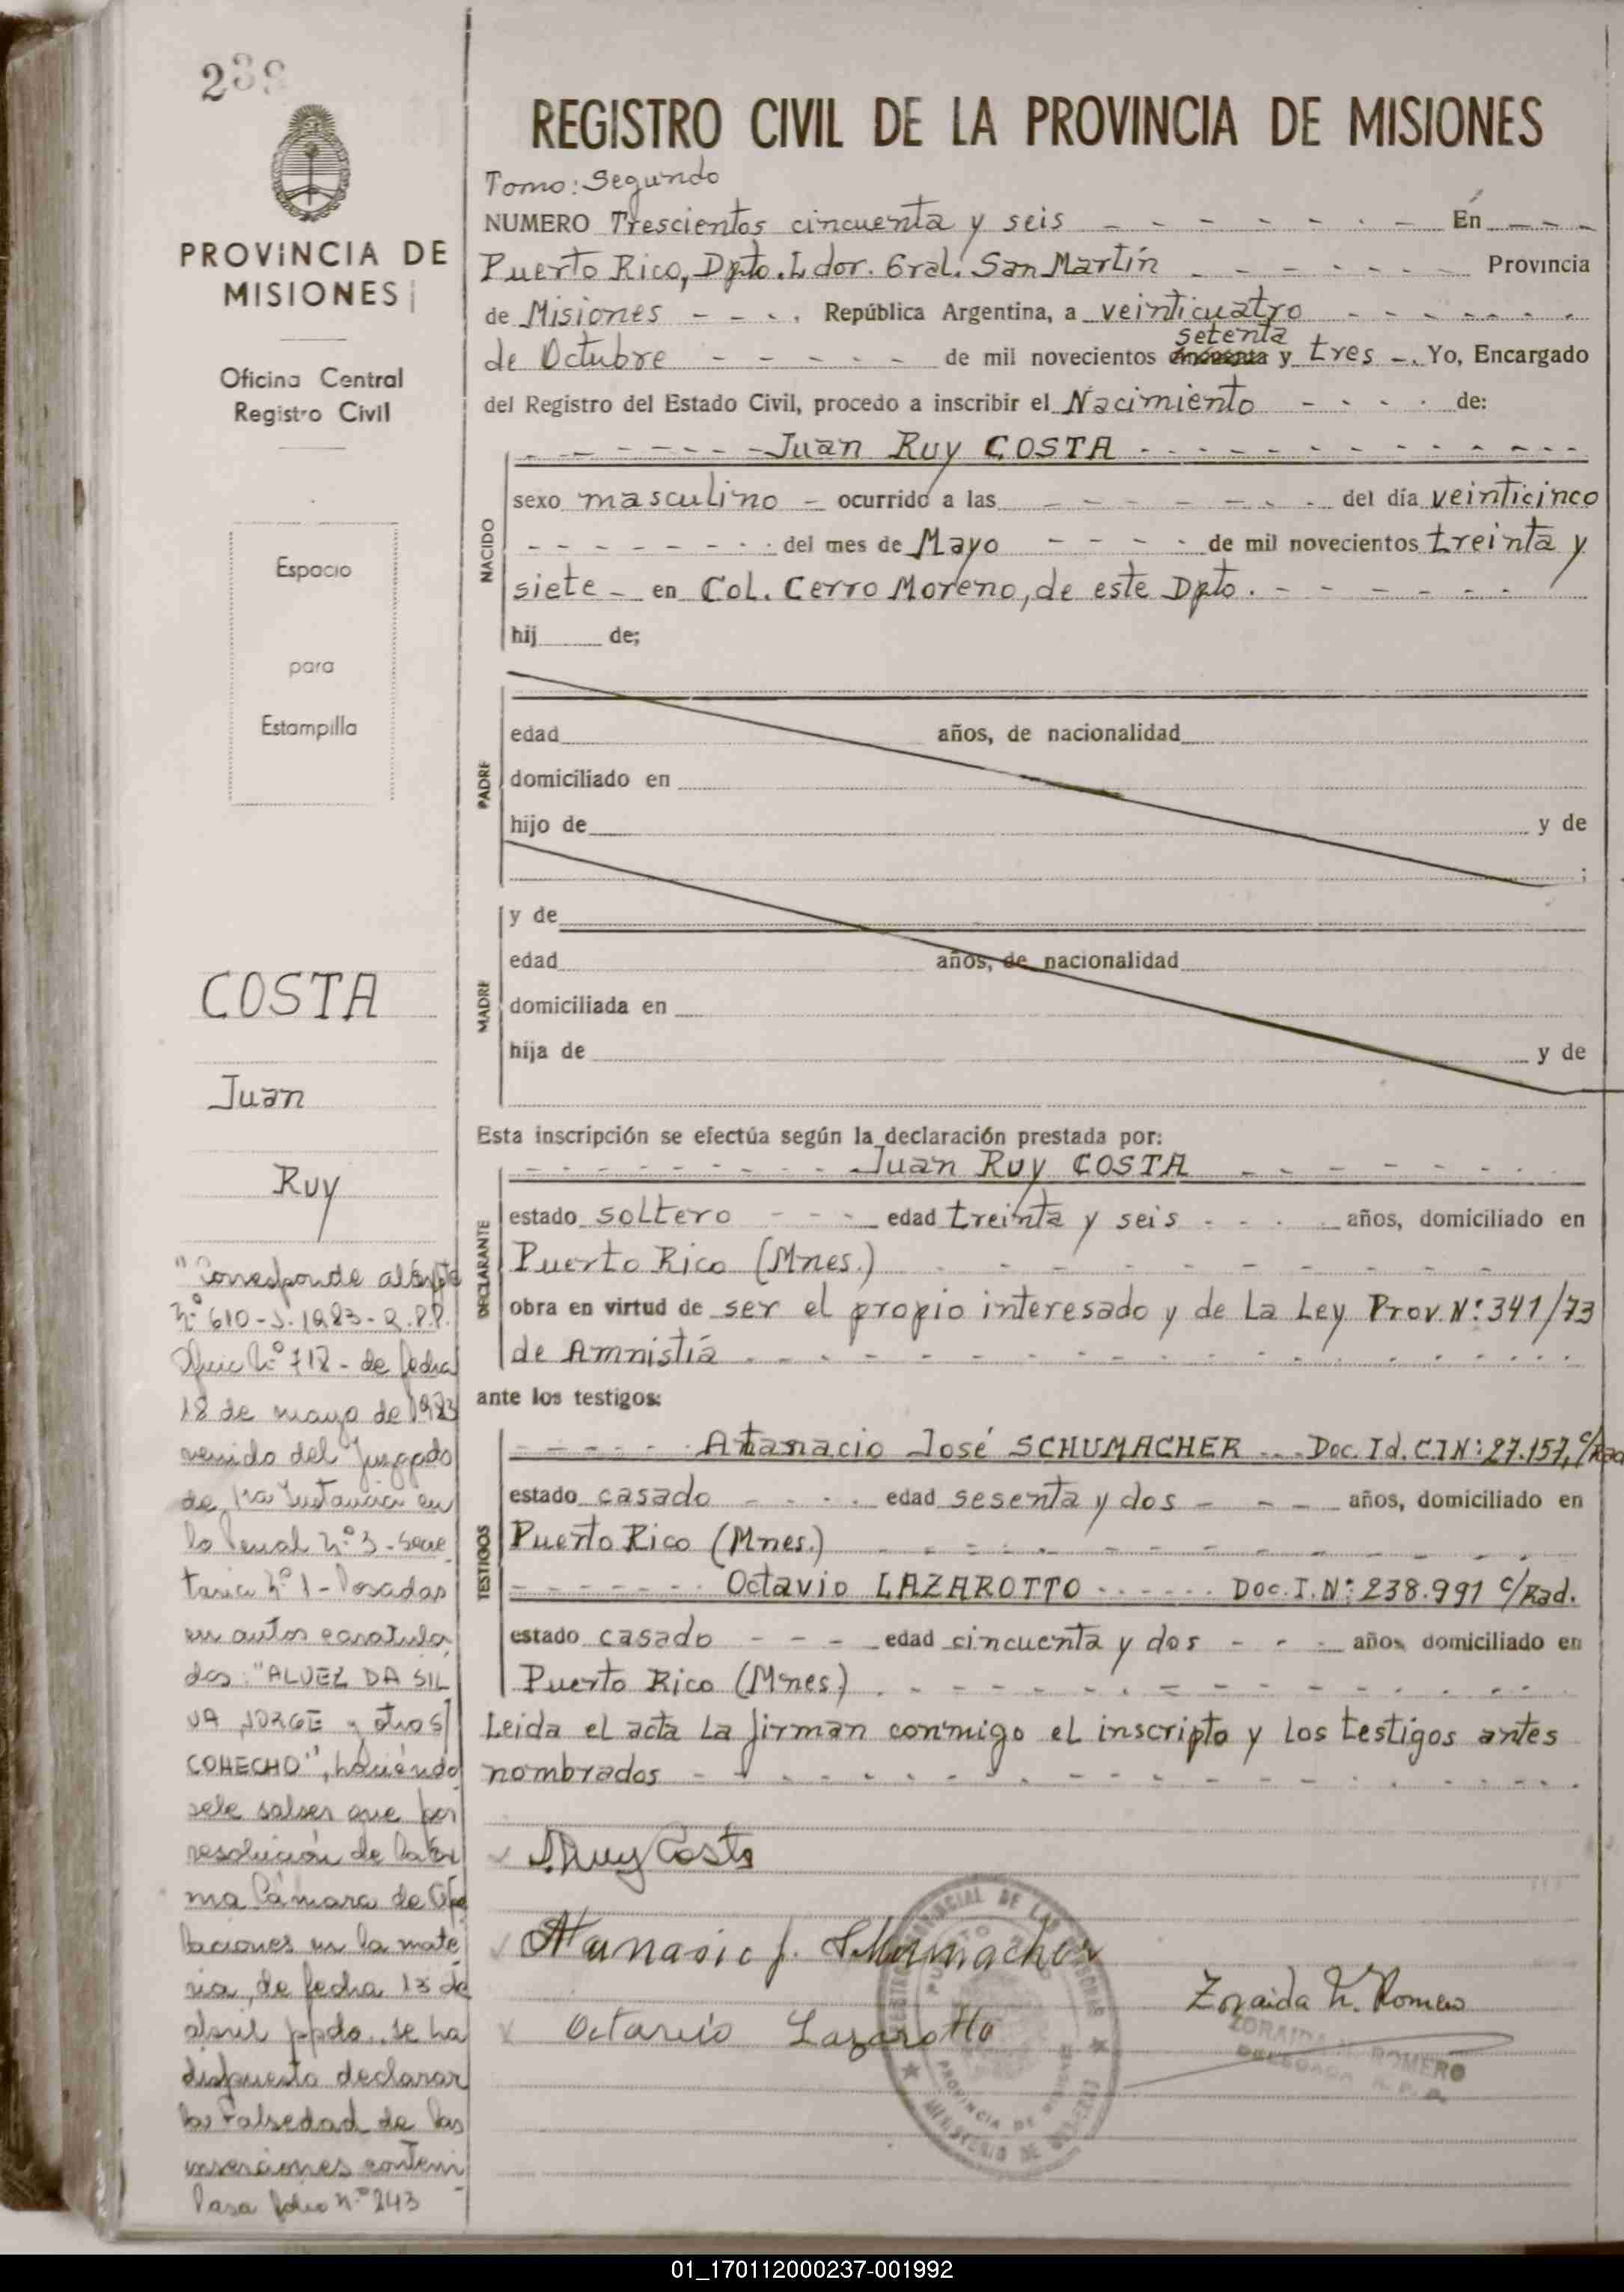 239
PROVINCIA DE
MISIONES
Oficina Central
Registro Civil
Espacio
para
Estampilla
COSTA
Juan
Ruy
"Corresponde al Expte
Nº 610-J-1983-R.P.P.
Oficio Nº 718 - de fecha
18 de mayo de 1983
venido del Juzgado
de 1ra Instancia en
lo Penal Nº 3 - Secre
taria Nº 1 - Posadas
en autos caratula
dos: "ALVEZ DA SIL
VA JORGE y otros/
COHECHO", haciendo
sele saber que por
resolución de la Ex
ma Cámara de Ape
laciones en la mate
ria, de fecha 13 de
abril ppdo. se ha
dispuesto declarar
la Falsedad de las
inserciones conteni
Pasa folio Nº 243
REGISTRO CIVIL DE LA PROVINCIA DE MISIONES
Tomo: Segundo
NUMERO Trescientos cincuenta y seis En
Puerto Rico, Dpto. Ldor. Gral. San Martín Provincia
de Misiones República Argentina, a veinticuatro
setenta
de Octubre de mil novecientos y tres Yo, Encargado
del Registro del Estado Civil, procedo a inscribir el Nacimiento de:
Juan Ruy COSTA
NACIDO
sexo masculino ocurrido a las del día veinticinco
del mes de Mayo de mil novecientos treinta y
siete en Col. Cerro Moreno, de este Dpto.
hij de;
PADRE
edad años, de nacionalidad
domiciliado en
hijo de y de
;
MADRE
y de
edad años, de nacionalidad
domiciliada en
hija de y de
Esta inscripción se efectúa según la declaración prestada por:
Juan Ruy COSTA
DECLARANTE
estado soltero edad treinta y seis años, domiciliado en
Puerto Rico (Mnes.)
obra en virtud de ser el propio interesado y de la Ley Prov. Nº: 341/73
de Amnistía
ante los testigos:
TESTIGOS
Atanacio José SCHUMACHER Doc. Id. C.I Nº: 27.157, c/Rad
estado casado edad sesenta y dos años, domiciliado en
Puerto Rico (Mnes.)
Octavio LAZAROTTO Doc. I. Nº: 238.991 c/Rad.
estado casado edad cincuenta y dos años domiciliado en
Puerto Rico (Mnes)
Leida el acta la firman conmigo el inscripto y los testigos antes
nombrados
J. Ruy Costa
Atanasio J. Schumacher
Octavio Lazarotto
Zoraida N. Romero
ZORAIDA N. ROMERO
DELEGADA R. P. P.
01_170112000237-001992